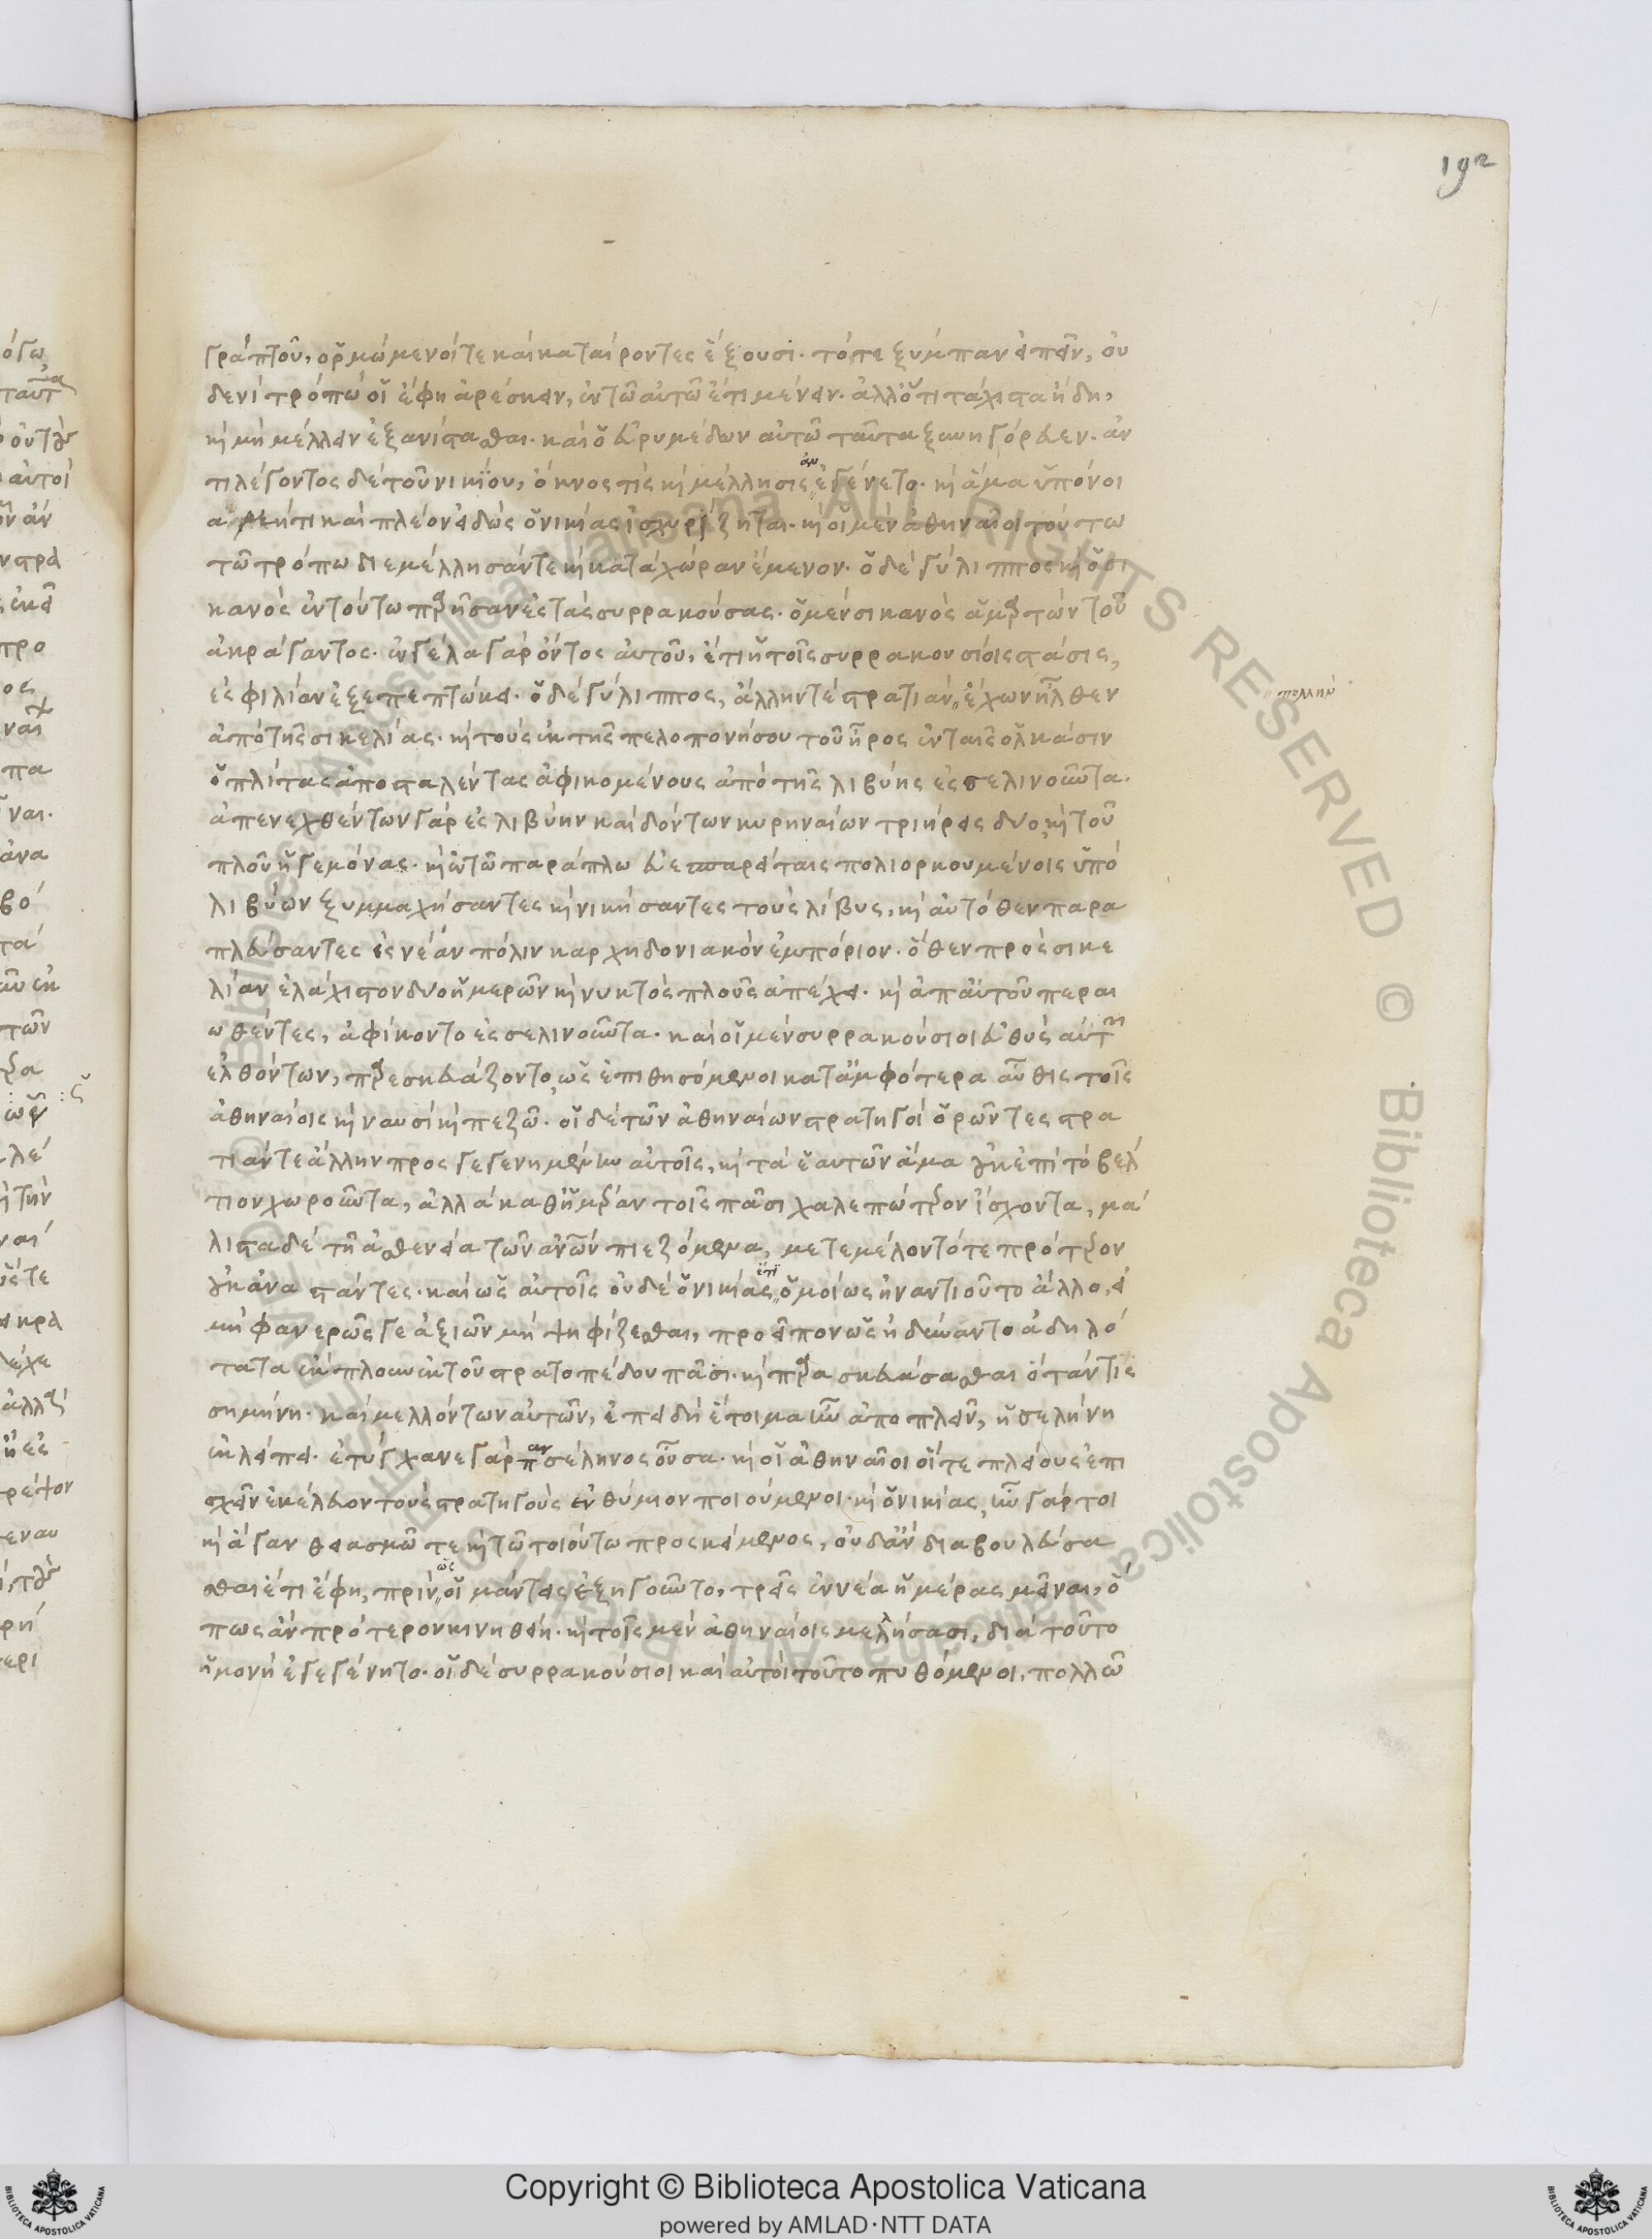 192
γράπτου, ὁρμώμενοί τε καὶ καταίροντες ἕξουσι. τό, τε ξύμπαν εἰπεῖν, οὐ
δενὶ τρόπω οἱ ἔφη ἀρέσκειν, ἐν τῶ αὐτῶ ἔτι μένειν. ἀλλ' ὅτι τάχιστα ἤδη,
καὶ μὴ μέλλειν ἐξανίστασθαι. καὶ ὁ εὐρυμέδων αὐτῶ ταῦτα ξυνηγόρευεν. ἀν
τιλέγοντος δὲ τοῦ νικίου, ὄκνος τίς καὶ μέλλησις ἐγένετο. καὶ ἅμα ὑπόνοι
αν
α μή τι καὶ πλέον εἰδὼς ὁ νικίας ἰσχυρίζηται. καὶ οἱ μὲν ἀθηναῖοι τούτω
τῶ τρόπω διεμέλλησάν τε καὶ κατὰ χώραν ἔμενον. ὁ δὲ γύλιππος καὶ ὁ σι
κανὸς ἐν τούτω παρῆσαν ἐς τὰς συρρακούσας. ὁ μὲν σικανὸς ἁμαρτὼν τοῦ
ἀκράγαντος. ἐν γέλα γὰρ ὄντος αὐτοῦ, ἔτι ἡ τοῖς συρρακουσίοις στάσις,
ἐς φιλίαν ἐξεπεπτώκει. ὁ δὲ γύλιππος, ἄλλην τὲ στρατιὰν ἔχων ἦλθεν
πολλὴν
ἀπὸ τῆς σικελίας. καὶ τοὺς ἐκ τῆς πελοπονήσου τοῦ ἦρος ἐν ταῖς ὁλκάσιν
ὁπλίτας ἀποσταλέντας ἀφικομένους ἀπὸ τῆς λιβύης ἐς σελινοῦντα.
ἀπενεχθέντων γὰρ ἐς λιβύην καὶ δόντων κυρηναίων τριήρεις δύο, καὶ τοῦ
πλοῦ ἡγεμόνας. καὶ ἐν τῶ παράπλω εὐεσπαρείταις πολιορκουμένοις ὑπὸ
λιβύων ξυμμαχήσαντες καὶ νικήσαντες τοὺς λίβυς, καὶ αὐτόθεν παρα
πλεύσαντες ἐς νέαν πόλιν καρχηδονιακὸν ἐμπόριον. ὅθεν πρὸς σικε
λίαν ἐλάχιστον δύο ἡμερῶν καὶ νυκτὸς πλοῦς ἀπέχει. καὶ ἀπ' αὐτοῦ περαι
ωθέντες, ἀφίκοντο ἐς σελινοῦντα. καὶ οἱ μὲν συρρακούσιοι εὐθὺς αὐτῶν
ἐλθόντων, παρεσκευάζοντο, ὡς ἐπιθησόμενοι κατ' ἀμφότερα αὖθις τοῖς
ἀθηναίοις καὶ ναυσὶ καὶ πεζῶ. οἱ δὲ τῶν ἀθηναίων στρατηγοὶ ὁρῶντες στρα
τιάν τε ἄλλην προσγεγενημένην αὐτοῖς, καὶ τὰ ἑαυτῶν ἅμα οὐκ ἐπὶ τὸ βέλ
τιον χωροῦντα, ἀλλὰ καθ' ἡμέραν τοῖς πᾶσι χαλεπώτερον ἴσχοντα, μά
λιστα δὲ τῆ ἀσθενεία τῶν ἀνθρώπων πιεζόμενα, μετεμέλοντό τε πρότερον
οὐκ ἀναστάντες. καὶ ὡς αὐτοῖς οὐδὲ ὁ νικίας ὁμοίως ἠναντιοῦτο ἄλλο, εἰ
ἔτι
μὴ φανερῶς γε ἀξιῶν μὴ ψηφίζεσθαι, προεῖπον ὡς ἠδύναντο ἀδηλό
τατα ἔκπλουν ἐκ τοῦ στρατοπέδου πᾶσι. καὶ παρασκευάσασθαι ὅταν τίς
σημήνη. καὶ μελλόντων αὐτῶν, ἐπειδὴ ἕτοιμα ἦν ἀποπλεῖν, ἡ σελήνη
ἐκλείπει. ἐτύγχανε γὰρ πανσέληνος οὖσα. καὶ οἱ ἀθηναῖοι οἵ τε πλείους ἐπι
σχεῖν ἐκέλευον τοὺς στρατηγοὺς ἐνθύμιον ποιούμενοι. καὶ ὁ νικίας, ἦν γάρ τοι
καὶ ἄγαν θειασμῶ τε καὶ τῶ τοιούτω προσκείμενος, οὐδ' ἂν διαβουλεύσα
σθαι ἔτι ἔφη, πρὶν οἱ μάντεις ἐξηγοῦντο, τρεῖς ἐννέα ἡμέρας μεῖναι, ὅ
ὡς
πως ἂν πρότερον κινηθείη. καὶ τοῖς μὲν ἀθηναίοις μελλήσασι, διὰ τοῦτο
ἡ μονὴ ἐγεγένητο. οἱ δὲ συρρακούσιοι καὶ αὐτοὶ τοῦτο πυθόμενοι, πολλῶ
Copyright © Biblioteca Apostolica Vaticana
powered by AMLAD·NTT DATA